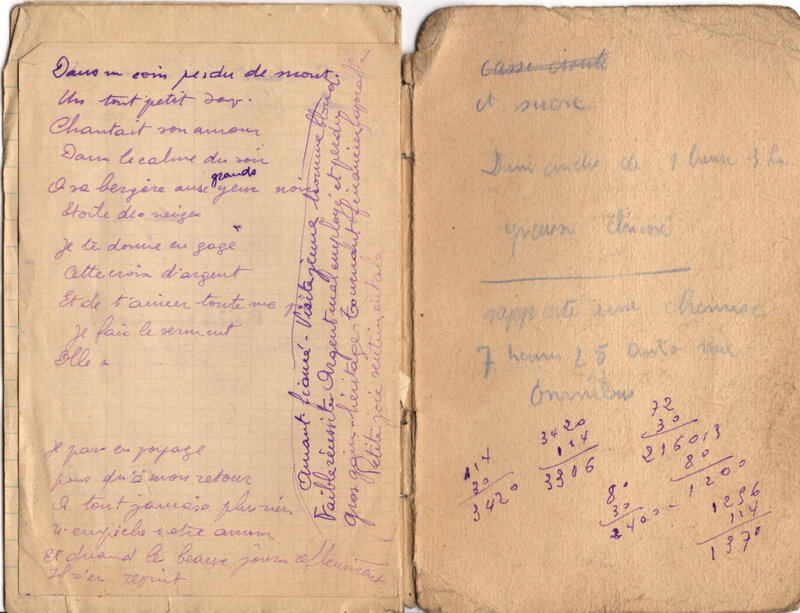 Dans un coin perdu de mont.
Un tout petit sav.
Chantait son amour
Dans le calme du soir
A sa bergère aux grands yeux noirs
Etoile des neiges
Je te donne en gage
Cette croix d'argent
Et de t'aimer toute ma
Je fais le serment
Elle
Je pars en voyage
pour qu'à mon retour
A tout jamais plus rien
n'empêche notre amour
Et quand les beaux jours refleurirent
Il s'en revint
Amant fiancé - Visite jeune homme blond
Faible réussite Argent mal employé et perdu
gros gain - héritage - tournant financier
Petite joie sentimentale
casse croute
et sucre
de 1 heure
rapporte une
7 heures 25 auto
Omnibus
114
30
3420
3420
114
3306
72
30
216013
80
30
2400
80
1200
1256
114
1370